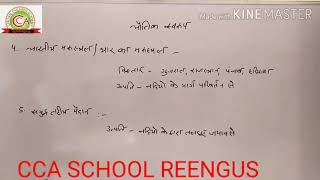 भौतिक स्वरूप
Made with KINEMASTER
4. भारतीय मरुस्थल / थार का मरुस्थल -
विस्तार - गुजरात, राजस्थान पंजाब, हरियाणा
उत्पति - नदियों के मार्ग परिवर्तन से
5. समुद्र तटीय मैदान :-
उत्पति - नदियों के द्वारा तलछट जमाव से
CCA SCHOOL REENGUS